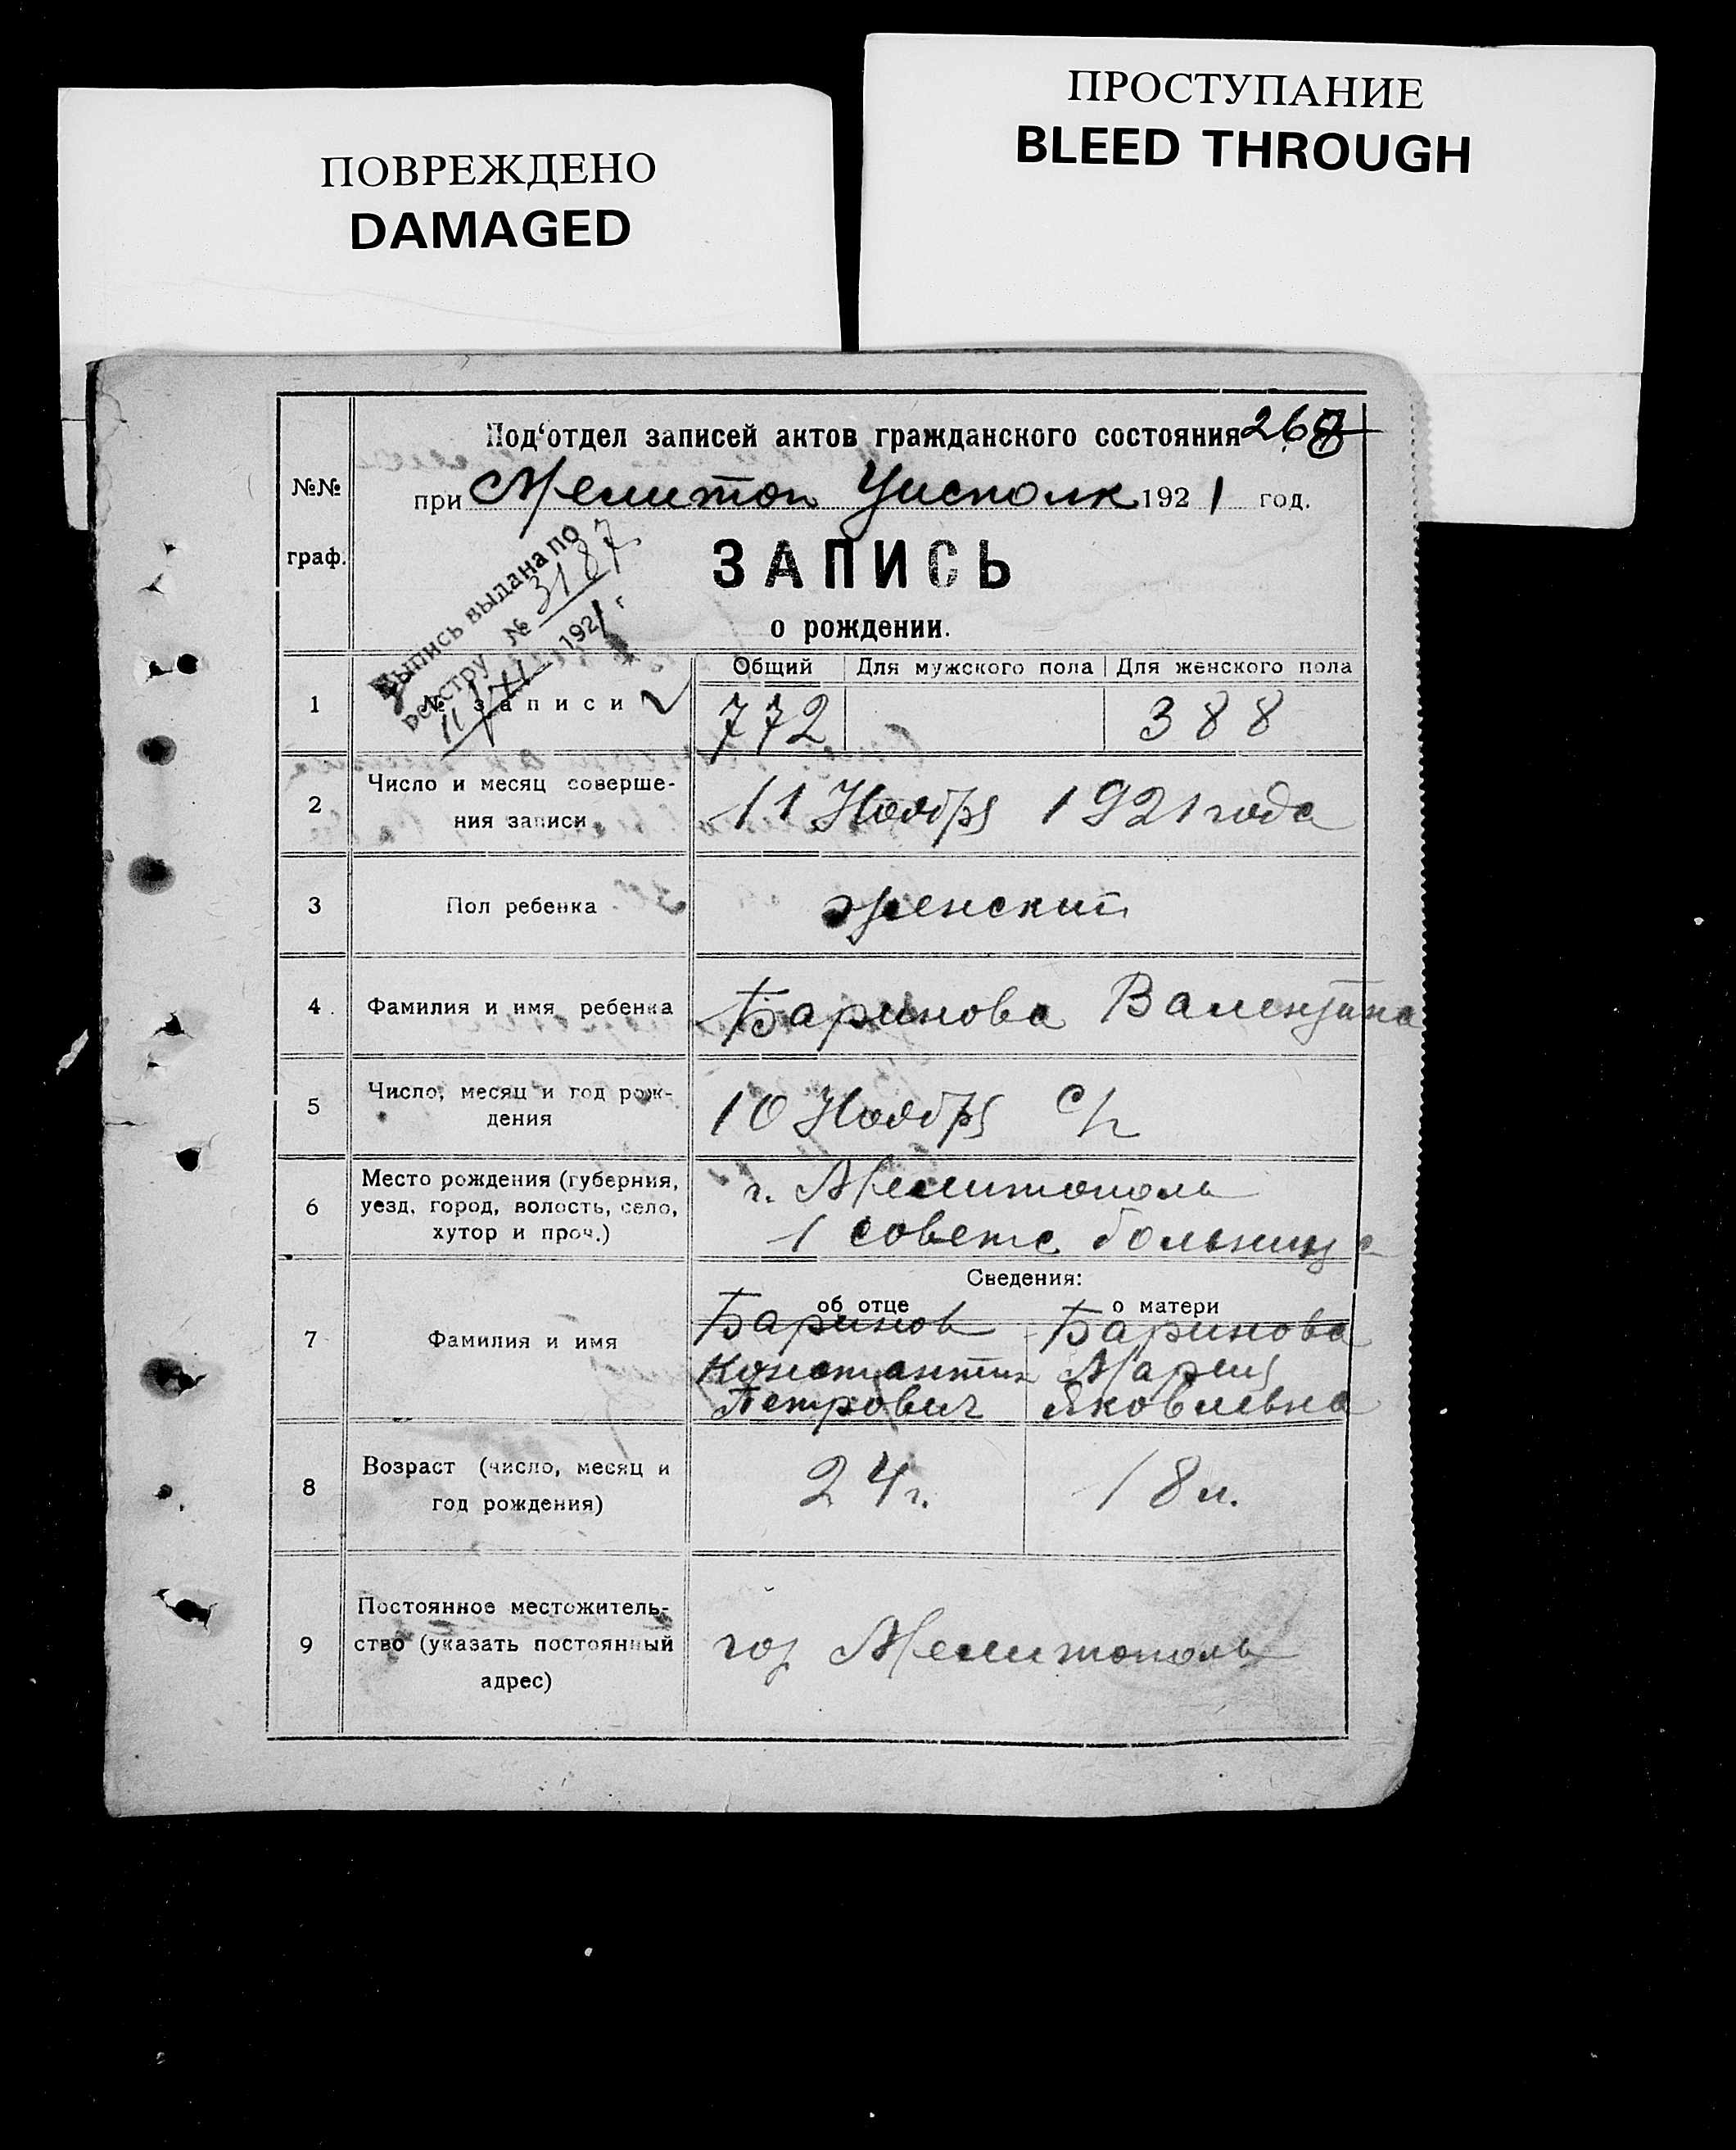 ПОВРЕЖДЕНО
DAMAGED
ПРОСТУПАНИЕ
BLEED THROUGH
Под‘отдел записей актов гражданского состояния
при Мелитоп Уисполк 1921 год.
№№
граф.
ЗАПИСЬ
о рождении.
Выпись выдана по
реестру № 3187
11/XI 1921 г.
Общий Для мужского пола Для женского пола
1 № записи 772 388
2 Число и месяц соверше-
ния записи 11 Ноября 1921 года
3 Пол ребенка женский
4. Фамилия и имя ребенка Баринова Валентина
5 Число, месяц и год рож-
дения 10 Ноября с/г
6 Место рождения (губерния,
уезд, город, волость, село,
хутор и проч.)
г. Мелитополь
1 советс больница
Сведения:
об отце о матери
7 Фамилия и имя
Баринов Баринова
Константин Мария
Петрович Яковлевна
8 Возраст (число, месяц и
год рождения) 24 г. 18 л.
9 Постоянное местожитель-
ство (указать постоянный
адрес)
гор Мелитополь